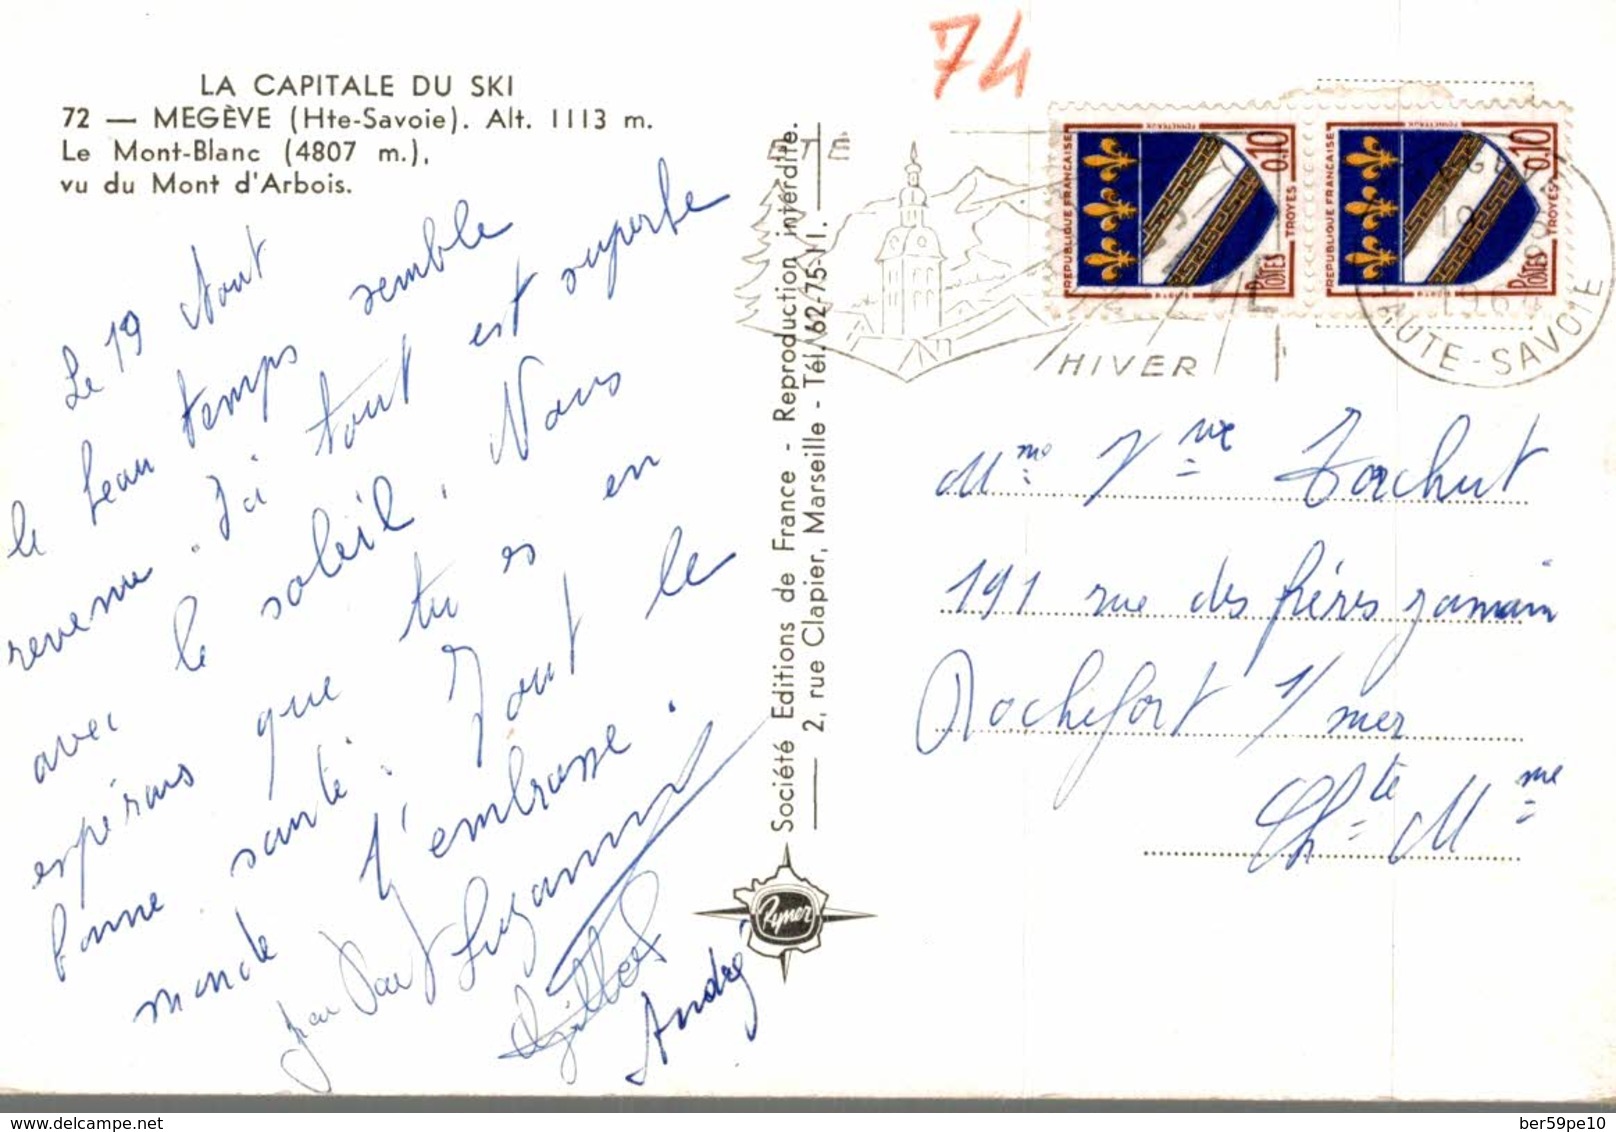 LA CAPITALE DU SKI
72 — MEGÈVE (Hte-Savoie). Alt. 1113 m.
Le Mont-Blanc (4807 m.),
vu du Mont d'Arbois.
Le 19 Aout
le beau temps semble
revenu. Ici tout est superbe
avec le soleil. Nous
espérons que tu es en
bonne santé. Tout le
monde t'embrasse.
Jean Paul Suzanne
André
Société Editions de France - Reproduction interdite.
2, rue Clapier, Marseille - Tél. 62-75-11.
Rymer
74
ÉTÉ
HIVER
REPUBLIQUE FRANÇAISE
0,10
TROYES
POSTES
REPUBLIQUE FRANÇAISE
0,10
TROYES
POSTES
1964
HAUTE-SAVOIE
Mme Vve Tachut
191 rue des frères jamain
Rochefort s/ mer
Ch=te Mme
delcampe.net
ber59pe10